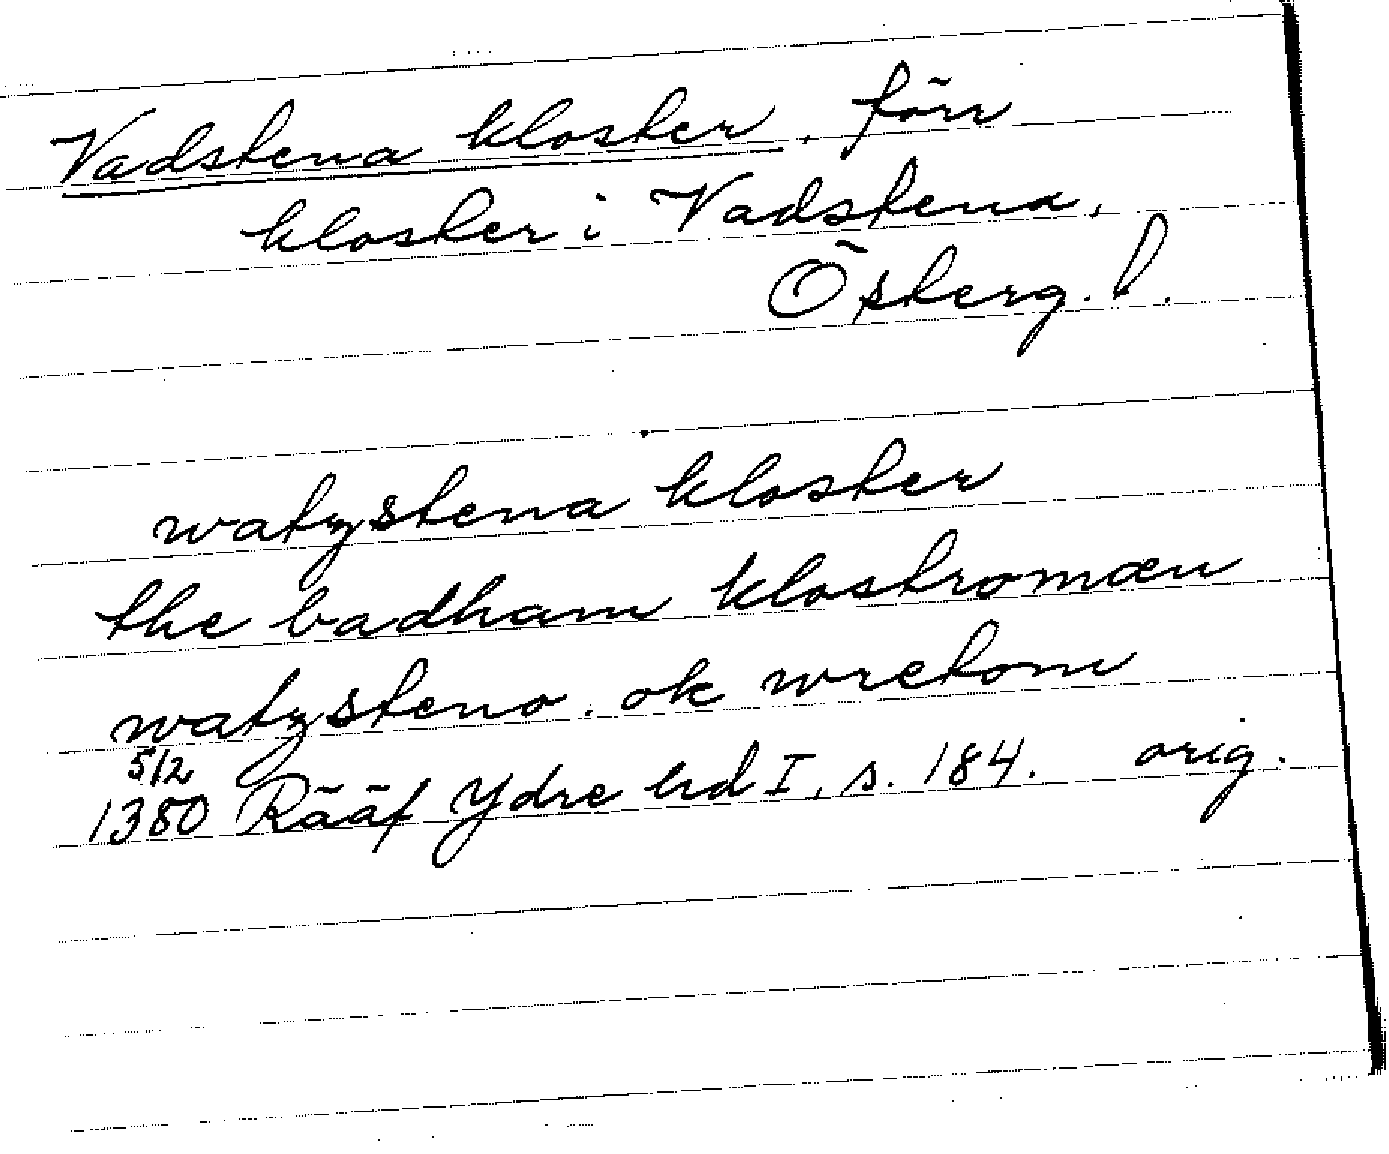 Vadstena kloster, förr
kloster i Vadstena,
Österg. l.
watzstena kloster
the badham klostromæn
watzsteno. ok wretom
5/2
1380 Rääf Ydre hd I, s. 184. orig.